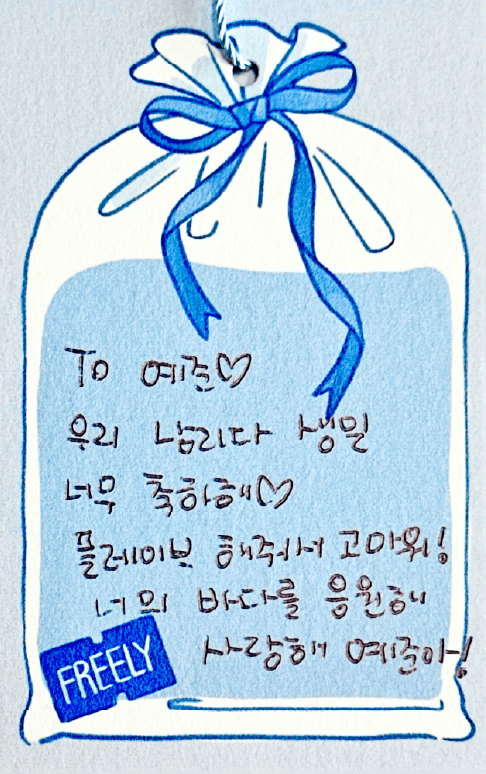 To 예준♡
우리 남리다 생일
너무 축하해♡
플레이브 해주서서 고마워!
너의 바다를 응원해
사랑해 예준아!
FREELY